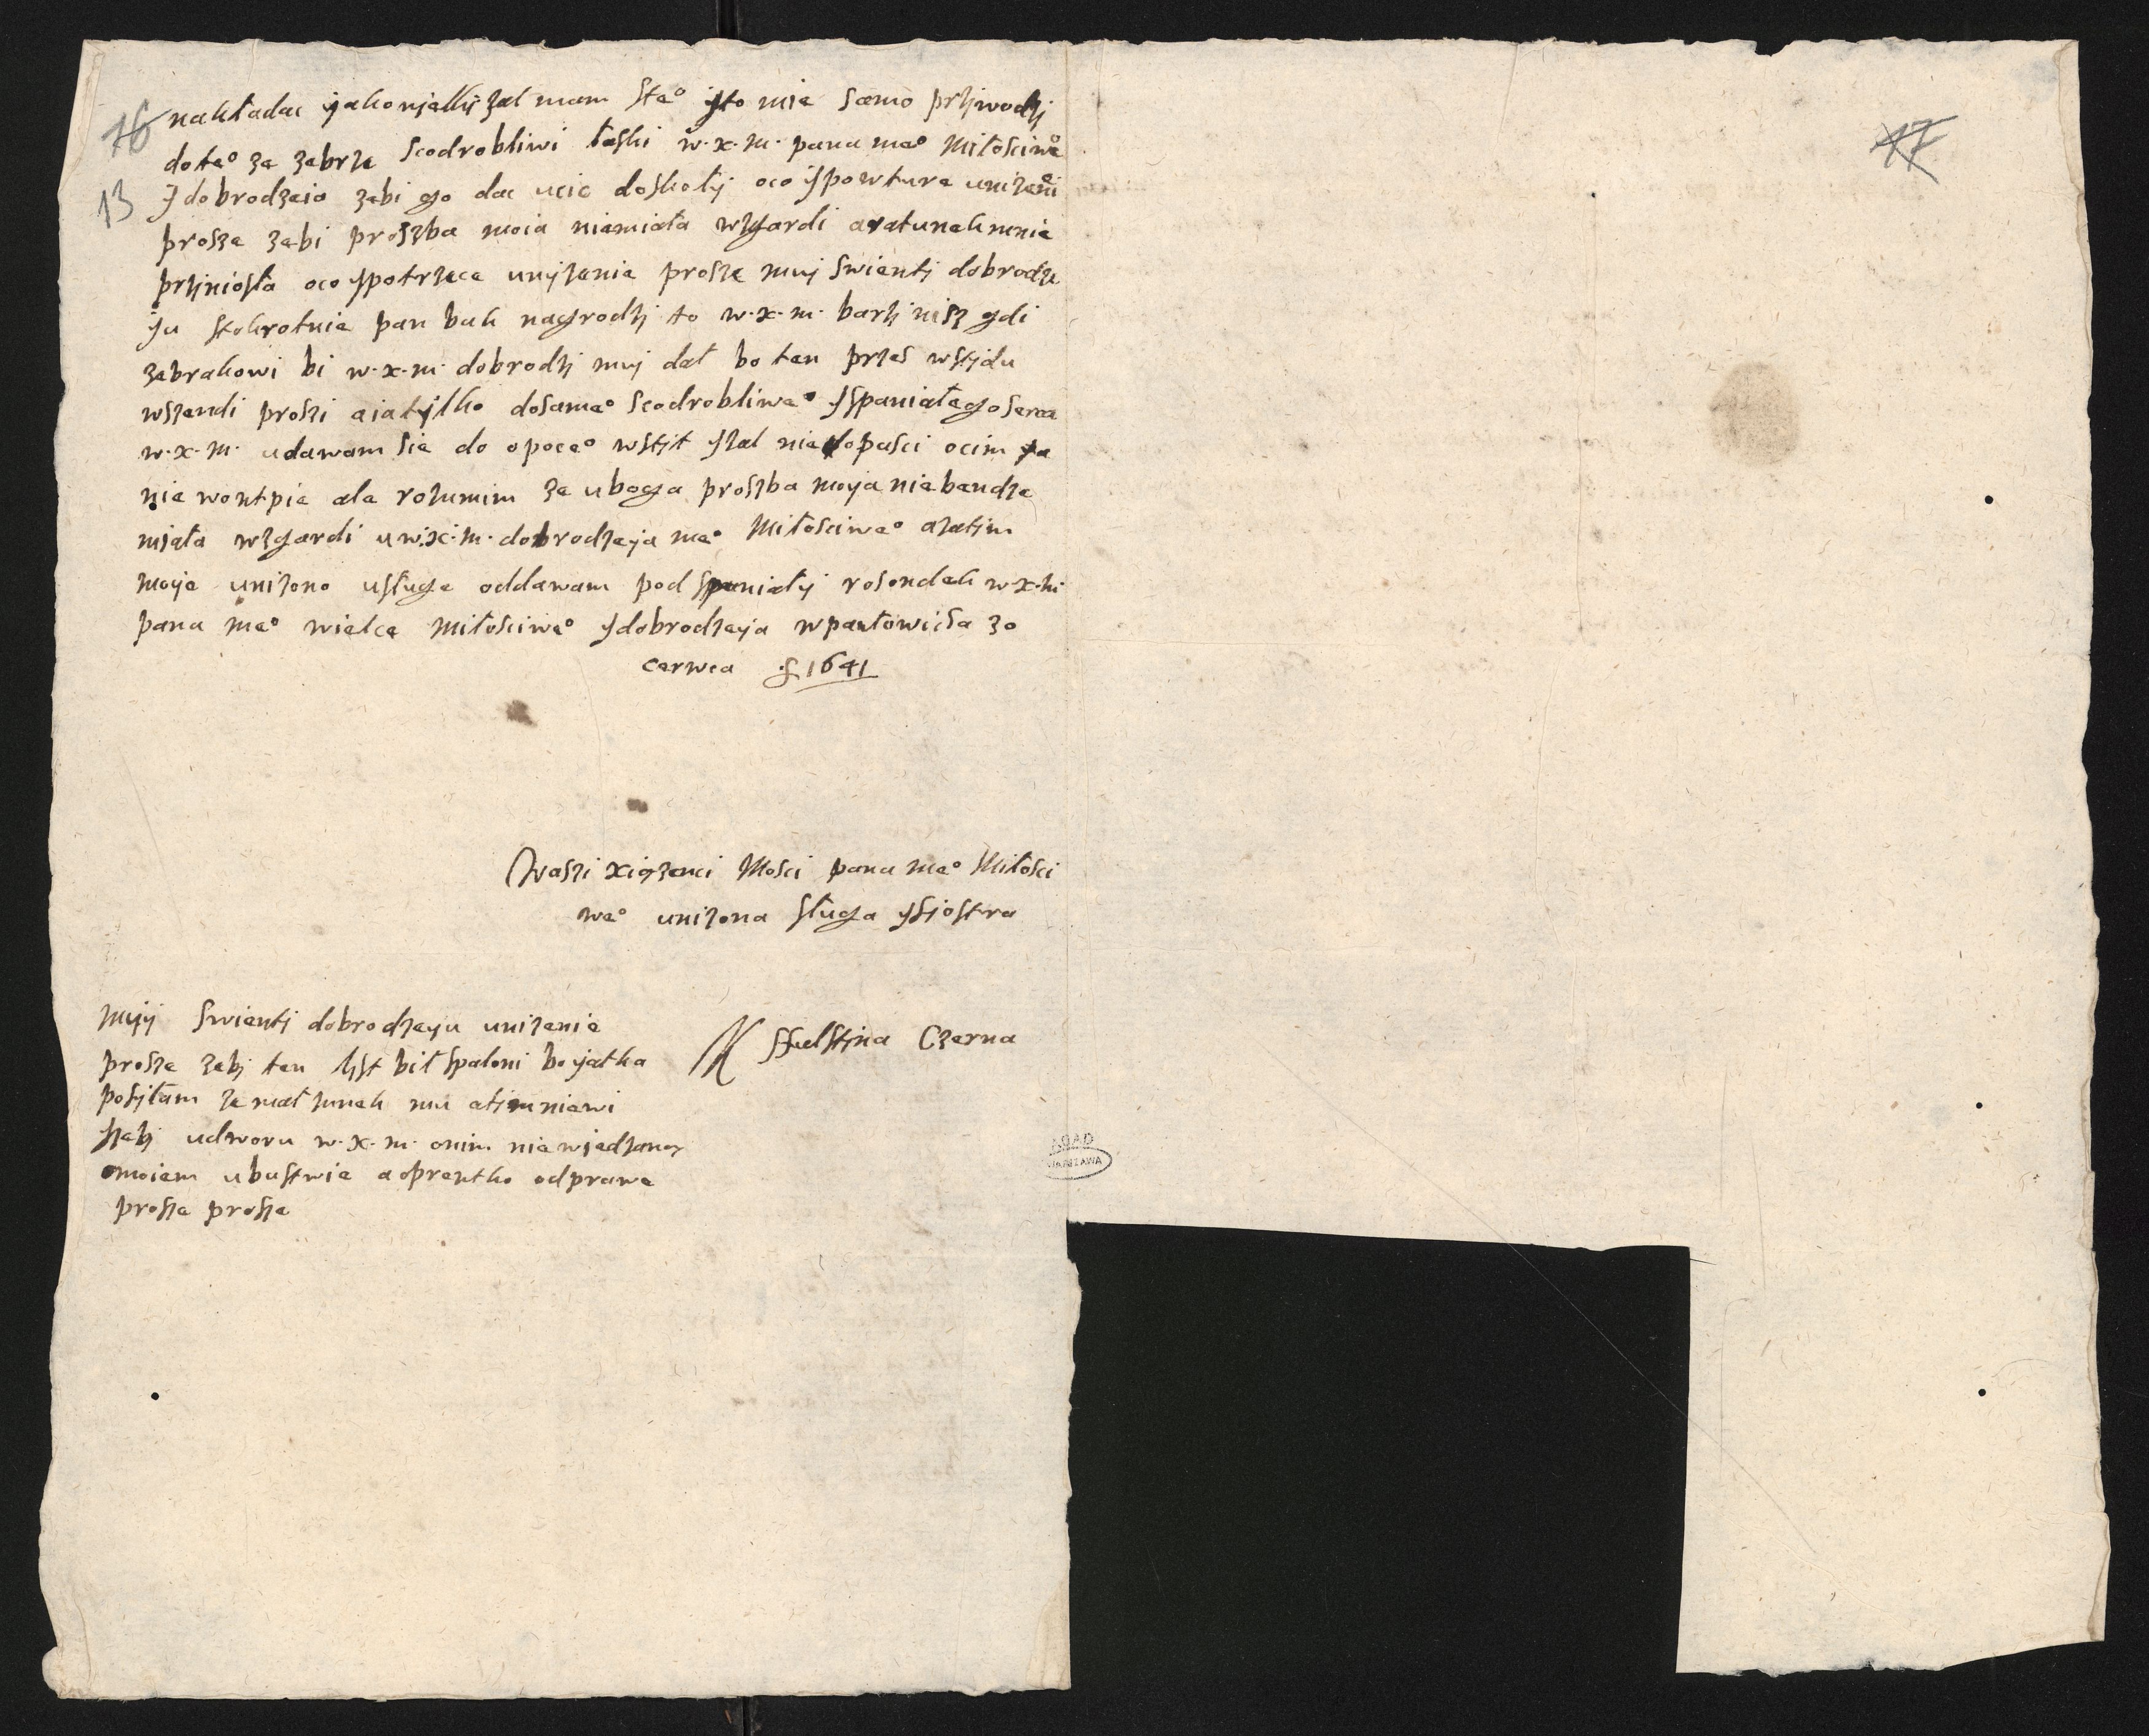 16
13
17
nakładac yakonjakÿ zal mam steº ÿto mie samo prziwodzi
doteº ze zebrze scodrobliwi łaski w·x·m· pana meº Miłosciweº
y dobrodzeia zebi go dac ucic doskoły oco ypowture unizenie
prosze zebi proszba moia niemiała wzgardi aratunek mnie
prziniosła oco ypotrzece unizenie prosze muj swientj dobrodze
yu stokrotnie pan buk nagrodzi to w·x·m· barzi nisz gdi
zebrakowi bi w·x·m· dobrodzi muj dał bo ten przes wstjdu
wszendi proszi aiatylko dosameº scodrobliweº yspaniałego serca
w·x·m· udawam sie do opoceº wstit yzal niedopusci ocim ya
nie wontpie ale rozumim ze uboga proszba moya niebendze
miała wzgardi u w·x·m· dobrodzeya meº Miłosciweº azatim
moye unizono usługe oddawam pod spaniały rosondek w·x·m·
pana meº wielce Miłosciweº ydobrodzeya wpawłowicsa 30
cerwca 1641
Waszi xiozenci Mosci pana meº Miłosci
weº unizona sługa ysiostra
Felstjna Czerna
Mujj swientj dobrodzeyu unizenie
prosze zebj ten list bił spaloni bo yatka
posiłam ze małzunek mu atim niewi
zebj udworu w·x·m· onim niewiedzano
omoiem ubustwie aoprentko odprawe
prosze prosze
AGAD
WARSZAWA